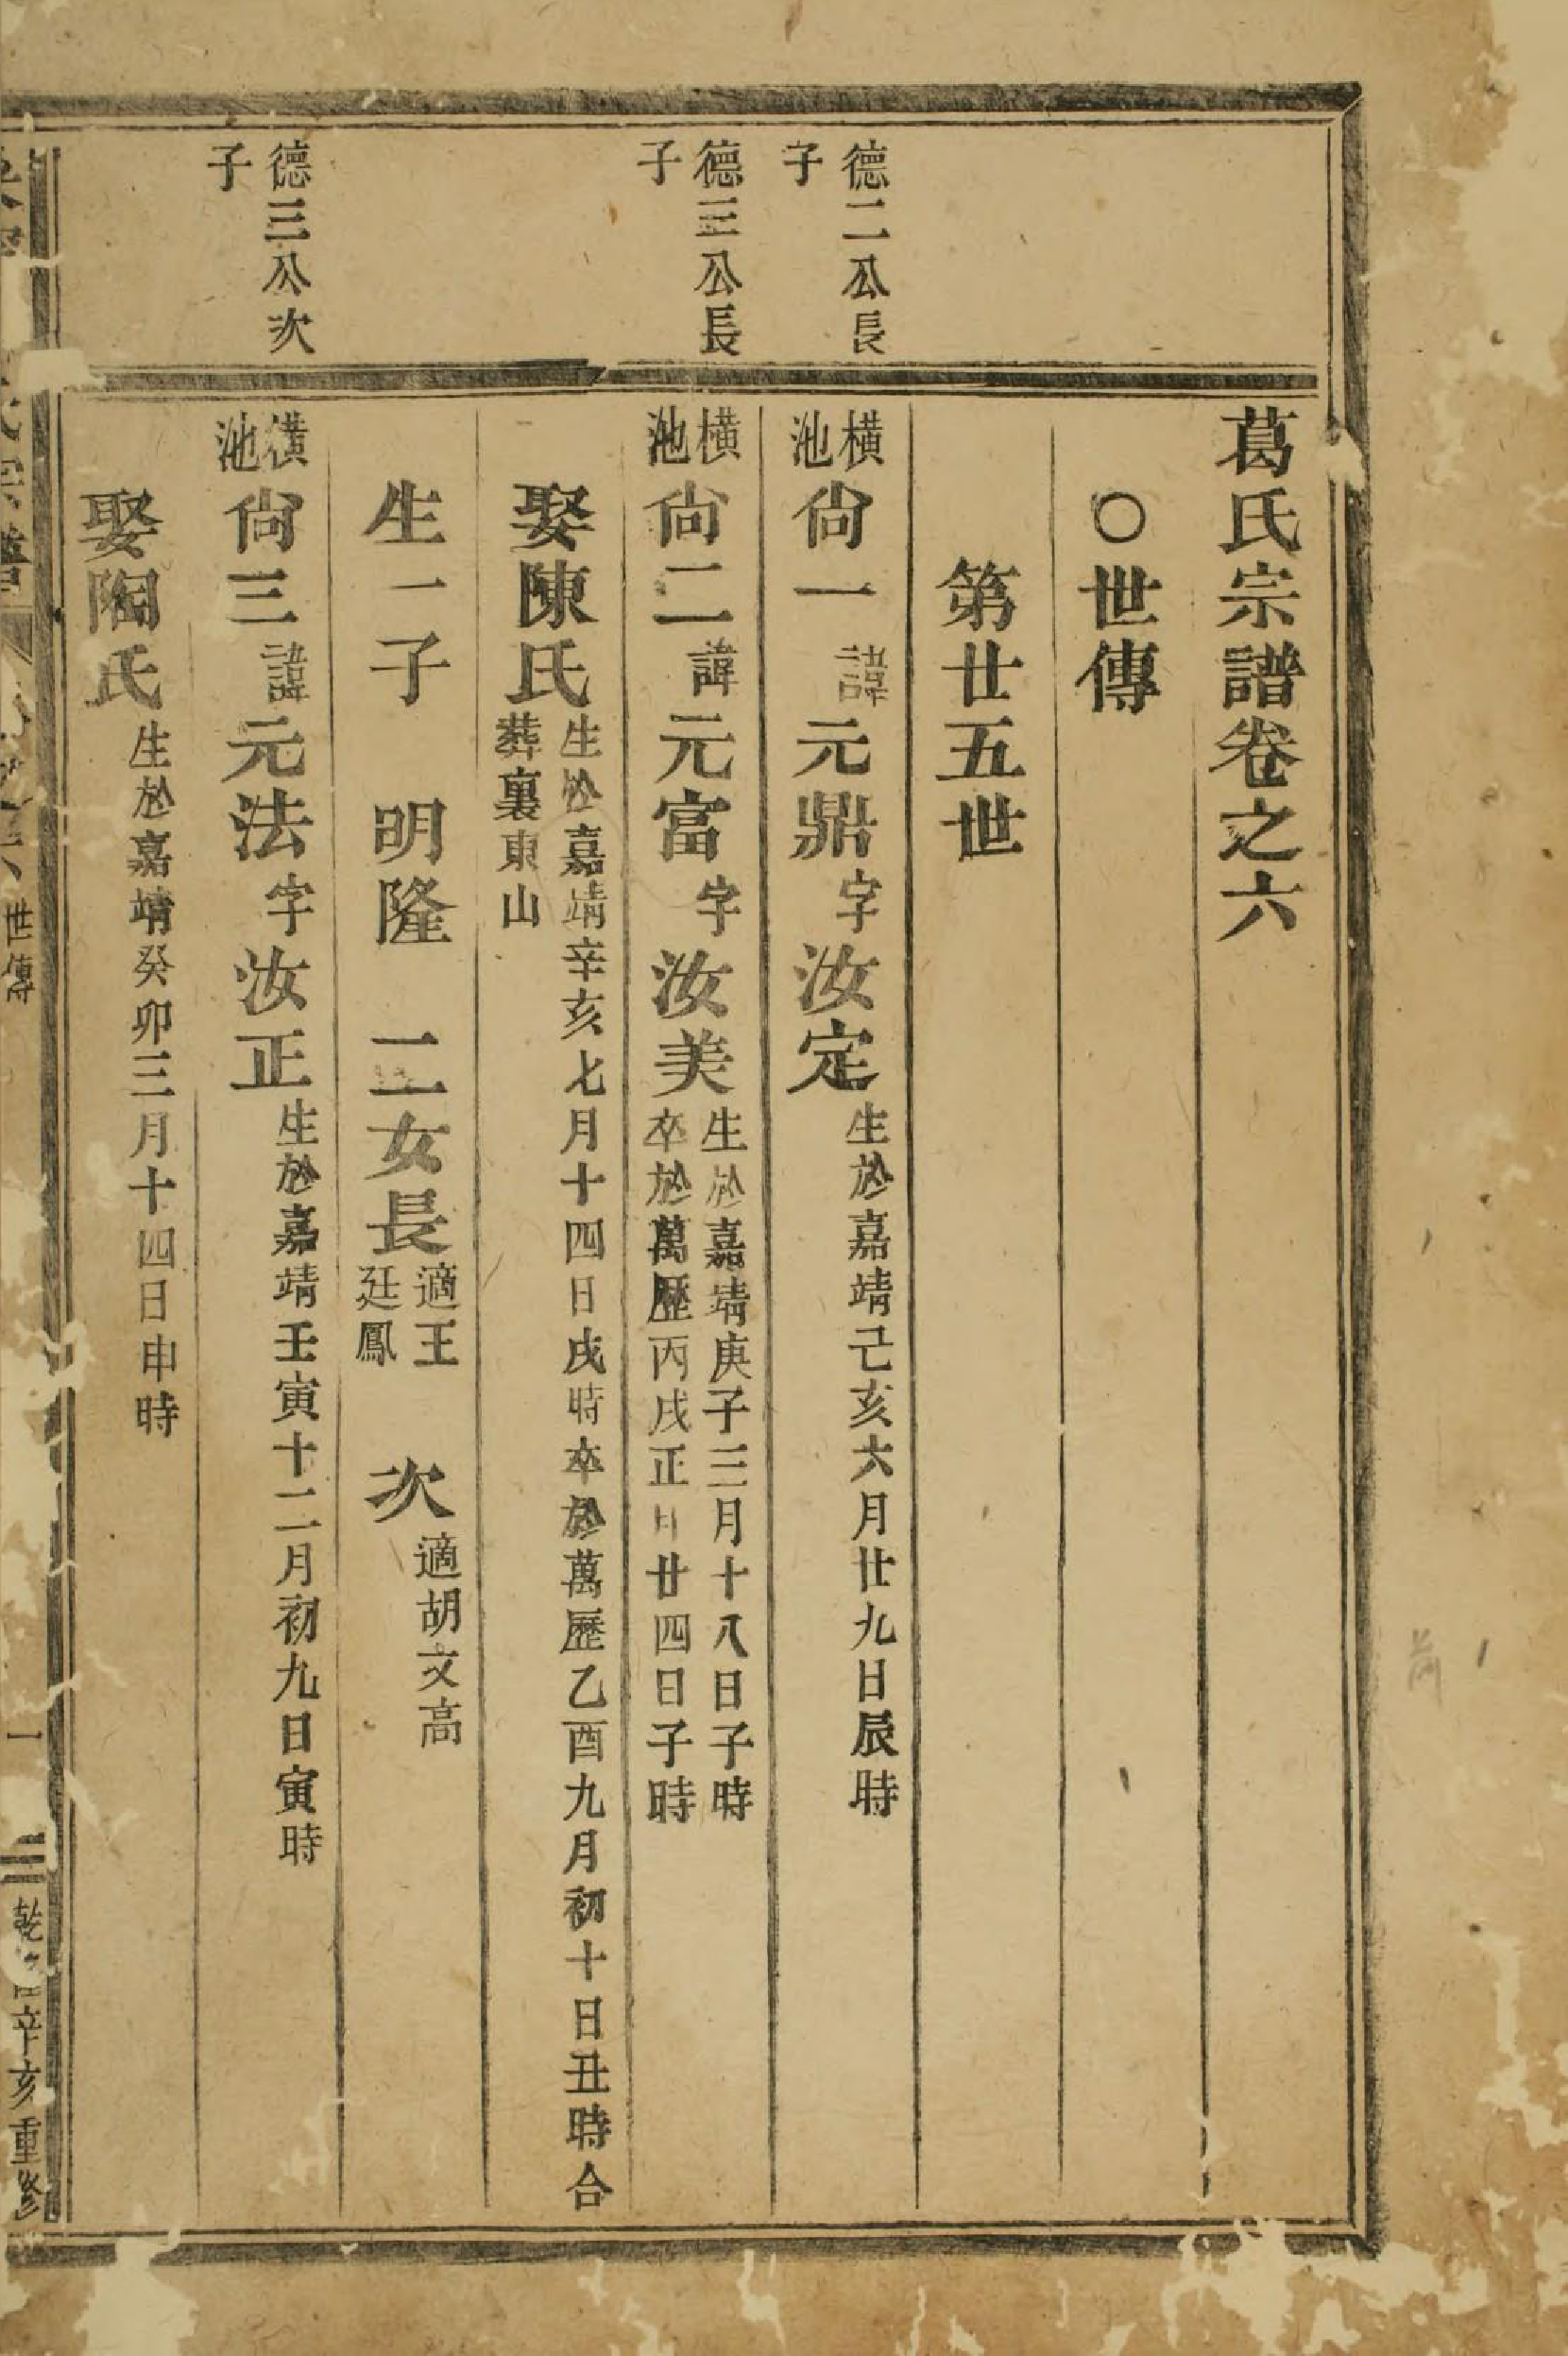 葛氏宗譜卷之六
○世傳
第廿五世
德二公長
子
橫池尙一諱元鼎字汝定生於嘉靖己亥六月廿九日辰時
德三公長
子
橫池尙二諱元富字汝美生於嘉靖庚子三月十八日子時
卒於萬歷丙戌正月廿四日子時
娶陳氏生於嘉靖辛亥七月十四日戌時卒於萬歷乙酉九月初十日丑時合
葬裏東山
生一子 明隆 二女長適王廷鳳 次適胡文高
德三公次
子
橫池尙三諱元法字汝正生於嘉靖壬寅十二月初九日寅時
娶陶氏生於嘉靖癸卯三月十四日申時
氏宗譜
世傳
一
乾隆辛亥重修